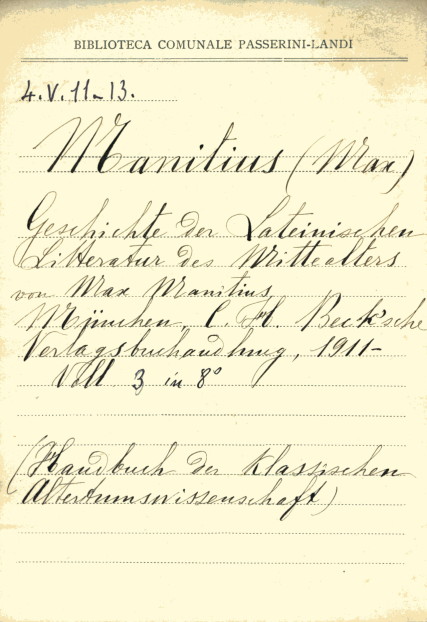 BIBLIOTECA COMUNALE PASSERINI-LANDI
4.V.11-13.
Manitius (Max)
Geschichte der Lateinischen
Litteratur des Mittealters
von Max Manitius
München, C. H. Beck'sche
Verlagsbuchandlung, 1911-
Voll 3 in 8°
(Handbuch der Klassischen
Altertumswissenschaft)